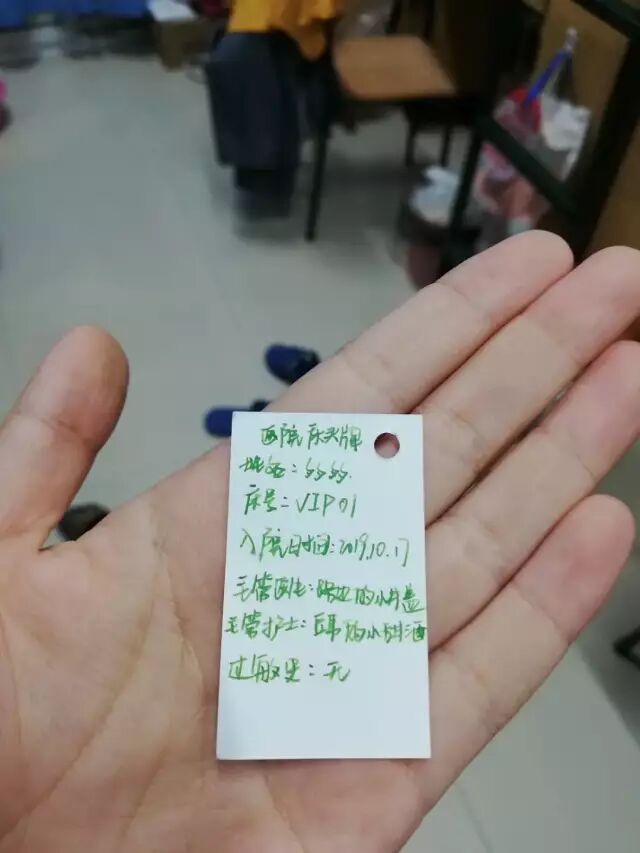 医院床头牌
姓名：夕夕.
床号：VIP01
入院日时间：2019.10.17
主管医生：隔壁的小膝盖
主管护士：巨的小甜酒
过敏史：无